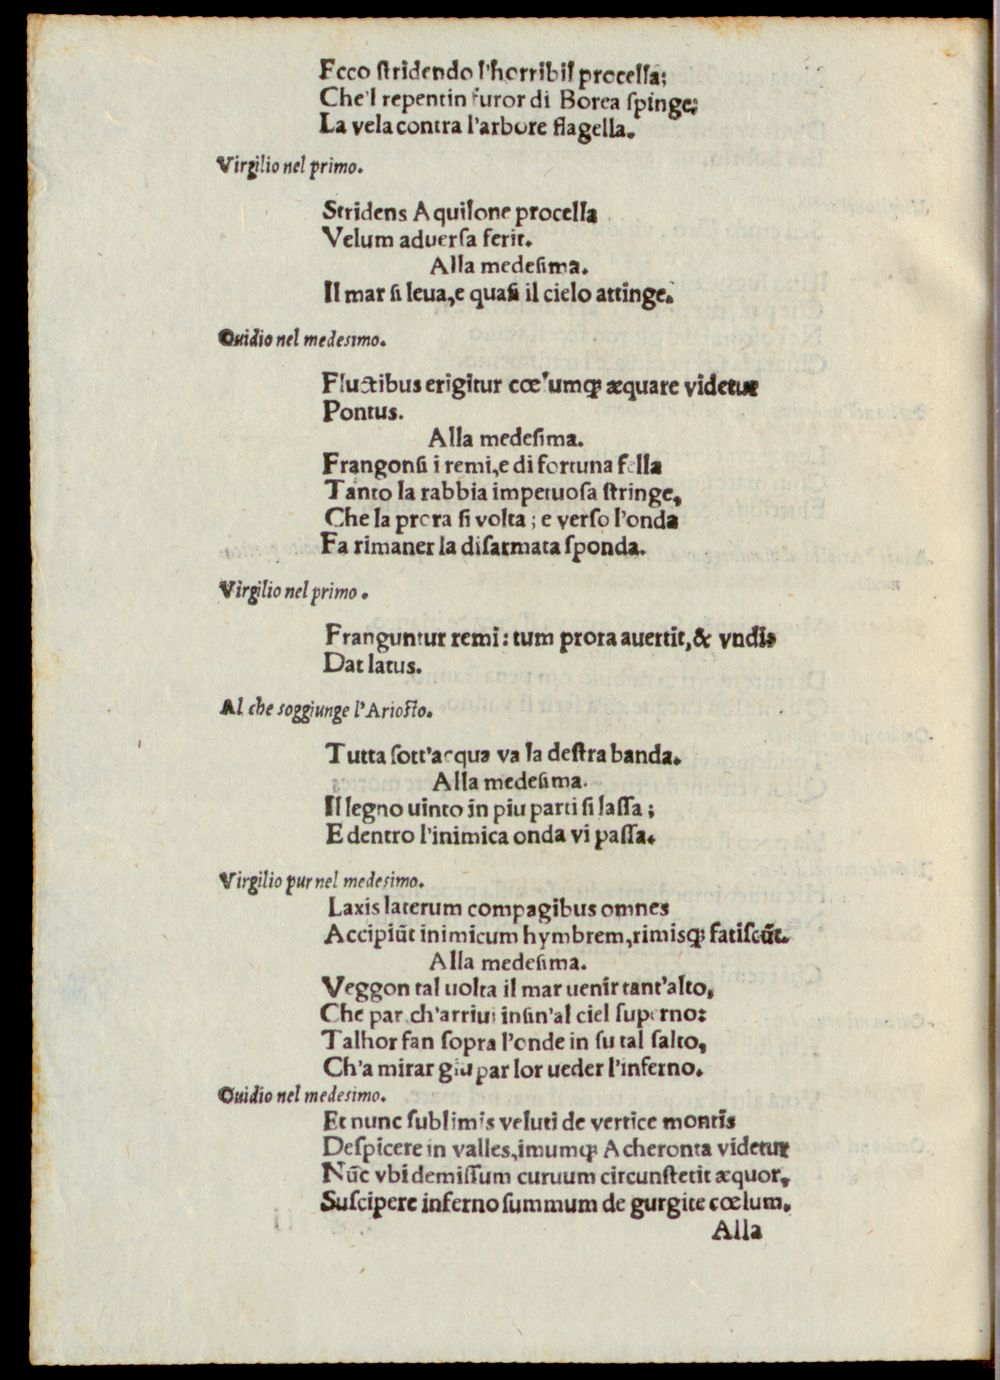 Ecco ſtridendo l'horribil proceſſa;
Che'l repentin furor di Borea ſpinge;
La vela contra l'arbore flagella.
Virgilio nel primo.
Stridens Aquilone procella
Velum aduerſa ferit.
Alla medeſima.
Il mar ſi leua, e quaſi il cielo attinge.
Ouidio nel medesimo.
Fluctibus erigitur cœlumq; æquare videtur
Pontus.
Alla medeſima.
Frangonſi i remi, e di fortuna fella
Tanto la rabbia impetuoſa ſtringe,
Che la prora ſi volta; e verſo l'onda
Fa rimaner la diſarmata ſponda.
Virgilio nel primo.
Franguntur remi: tum prora auertit, & vndis
Dat latus.
Al che soggiunge l'Ariosto.
Tutta ſott'acqua va la deſtra banda.
Alla medeſima.
Il legno uinto in piu parti ſi laſſa;
E dentro l'inimica onda vi paſſa.
Virgilio pur nel medesimo.
Laxis laterum compagibus omnes
Accipiũt inimicum hymbrem, rimisq; fatiſcũt.
Alla medeſima.
Veggon tal uolta il mar uenir tant'alto,
Che par ch'arriui inſin'al ciel ſuperno:
Talhor fan ſopra l'onde in ſu tal ſalto,
Ch'a mirar giu par lor ueder l'inferno.
Ouidio nel medesimo.
Et nunc ſublimis veluti de vertice montis
Deſpicere in valles, imumq; Acheronta videtur
Nũc vbi demiſſum curuum circunſtetit æquor,
Suſcipere inferno ſummum de gurgite cœlum.
Alla